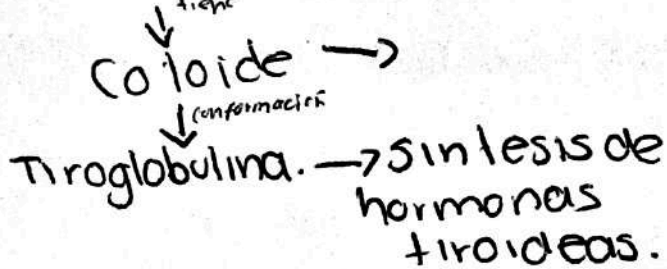 tiene
Coloide →
conformación
Tiroglobulina. → Sintesis de
hormonas
tiroideas.